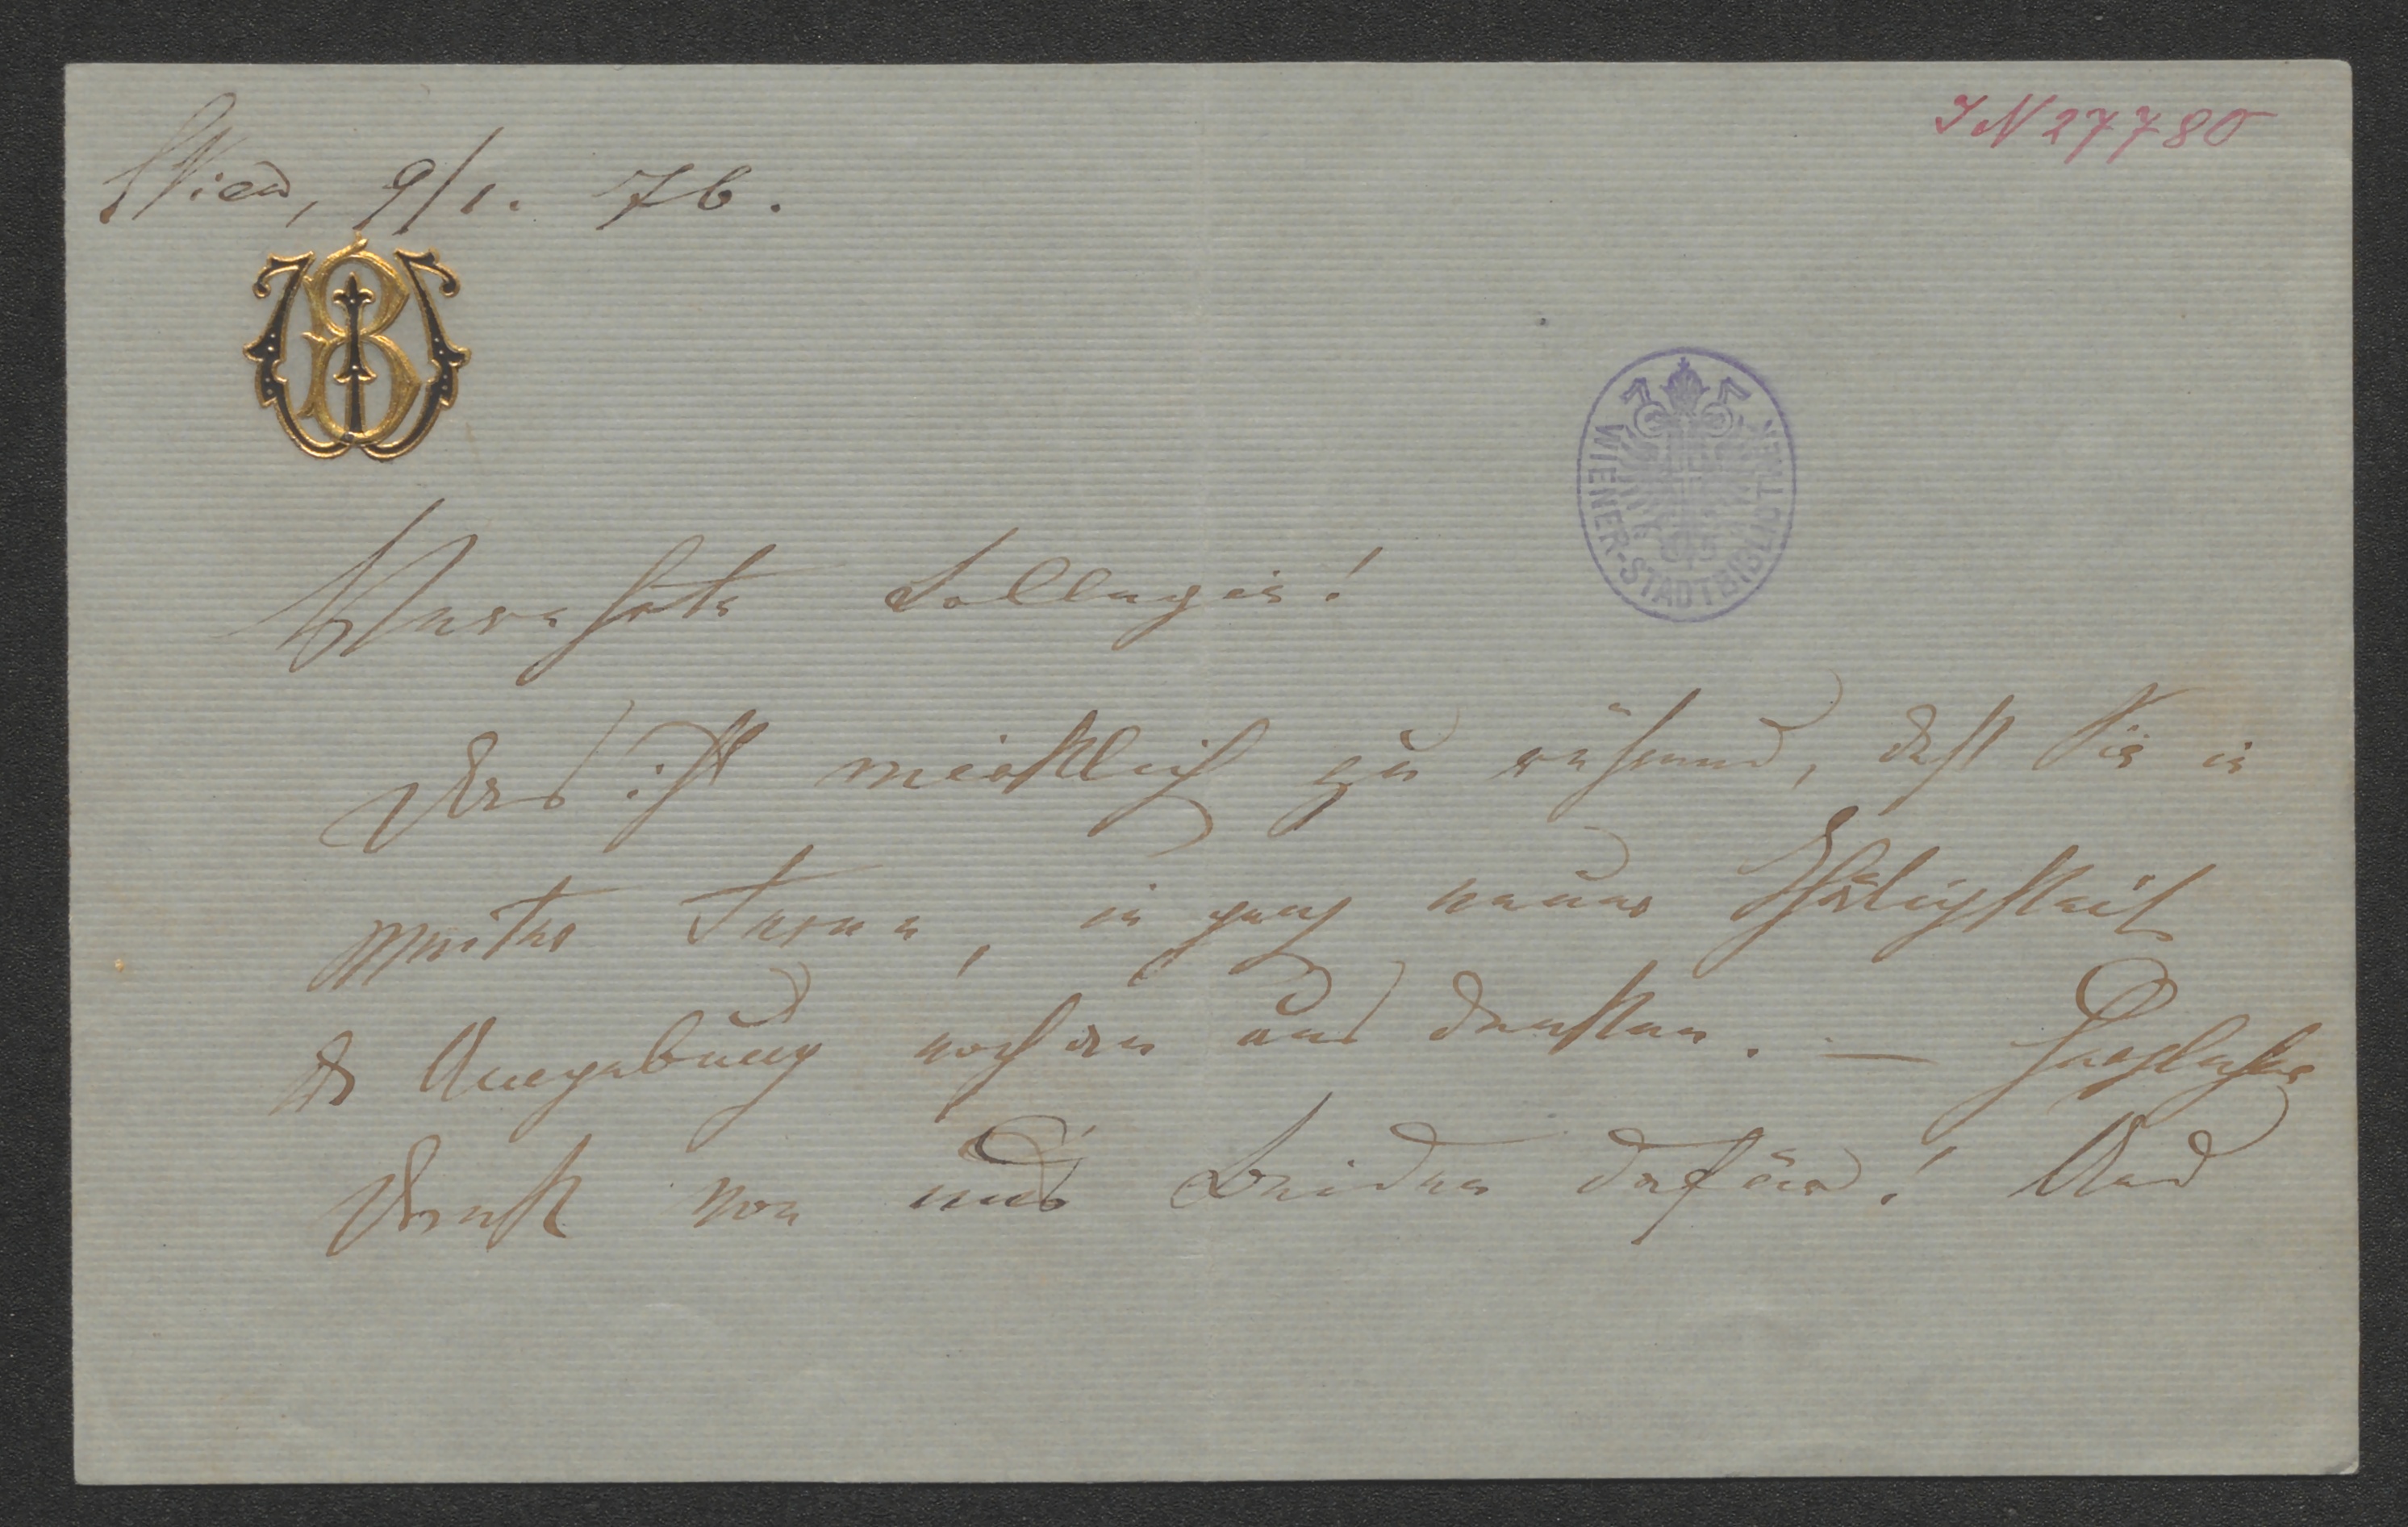 IN 27780
Wien, 9/1. 76.
WIENER-STADTBIBLIOTHEK
Verehrte Collegin!
Das ist wirklich zu rührend, daß Sie in
weiter Ferne, in ganz neuer Thätigkeit
& Umgebung noch an uns denken. — Herzlichen
Dank von uns Beiden dafür! Und